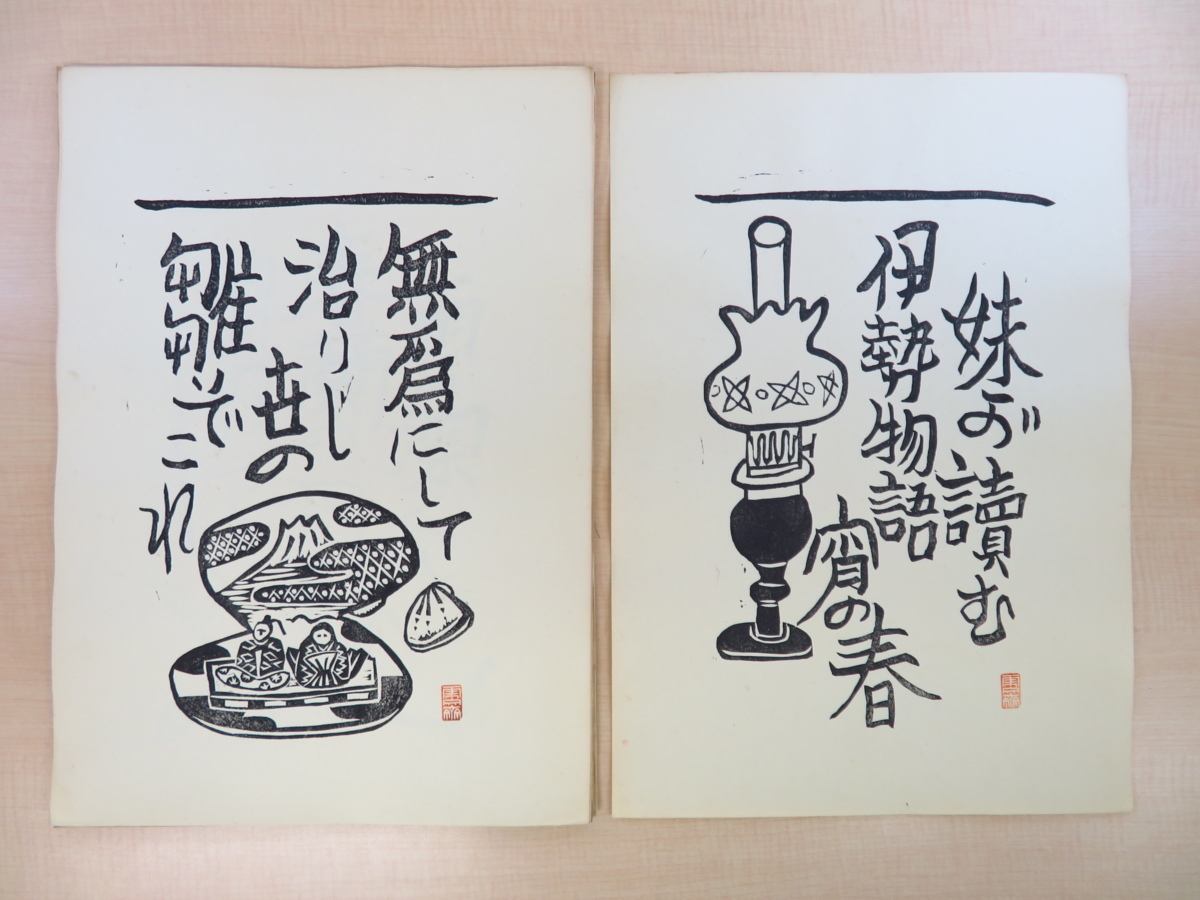 妹が讀む
伊勢物語
宵の春
無爲にして
治りし
世の
雛ぞこれ